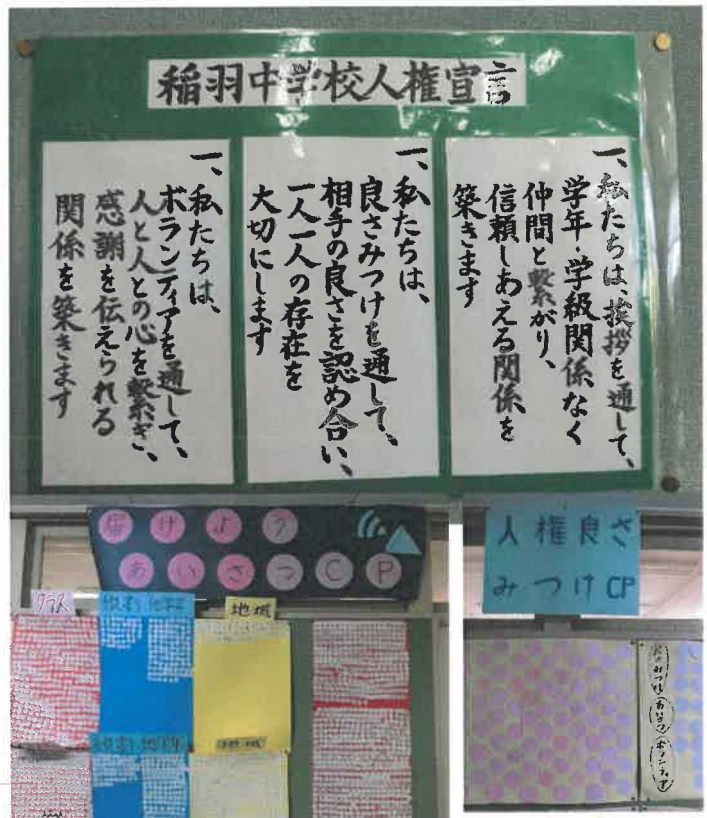 稲羽中学校人権宣言
一、私たちは、挨拶を通して、
学年・学級関係なく
仲間と繋がり、
信頼しあえる関係を
築きます
一、私たちは、
良さみつけを通して、
相手の良さを認め合い、
一人一人の存在を
大切にします
一、私たちは、
ボランティアを通して、
人と人との心を繋ぎ、
感謝を伝えられる
関係を築きます
届けよう
あいさつCP
クラス
地域
人権良さ
みつけCP